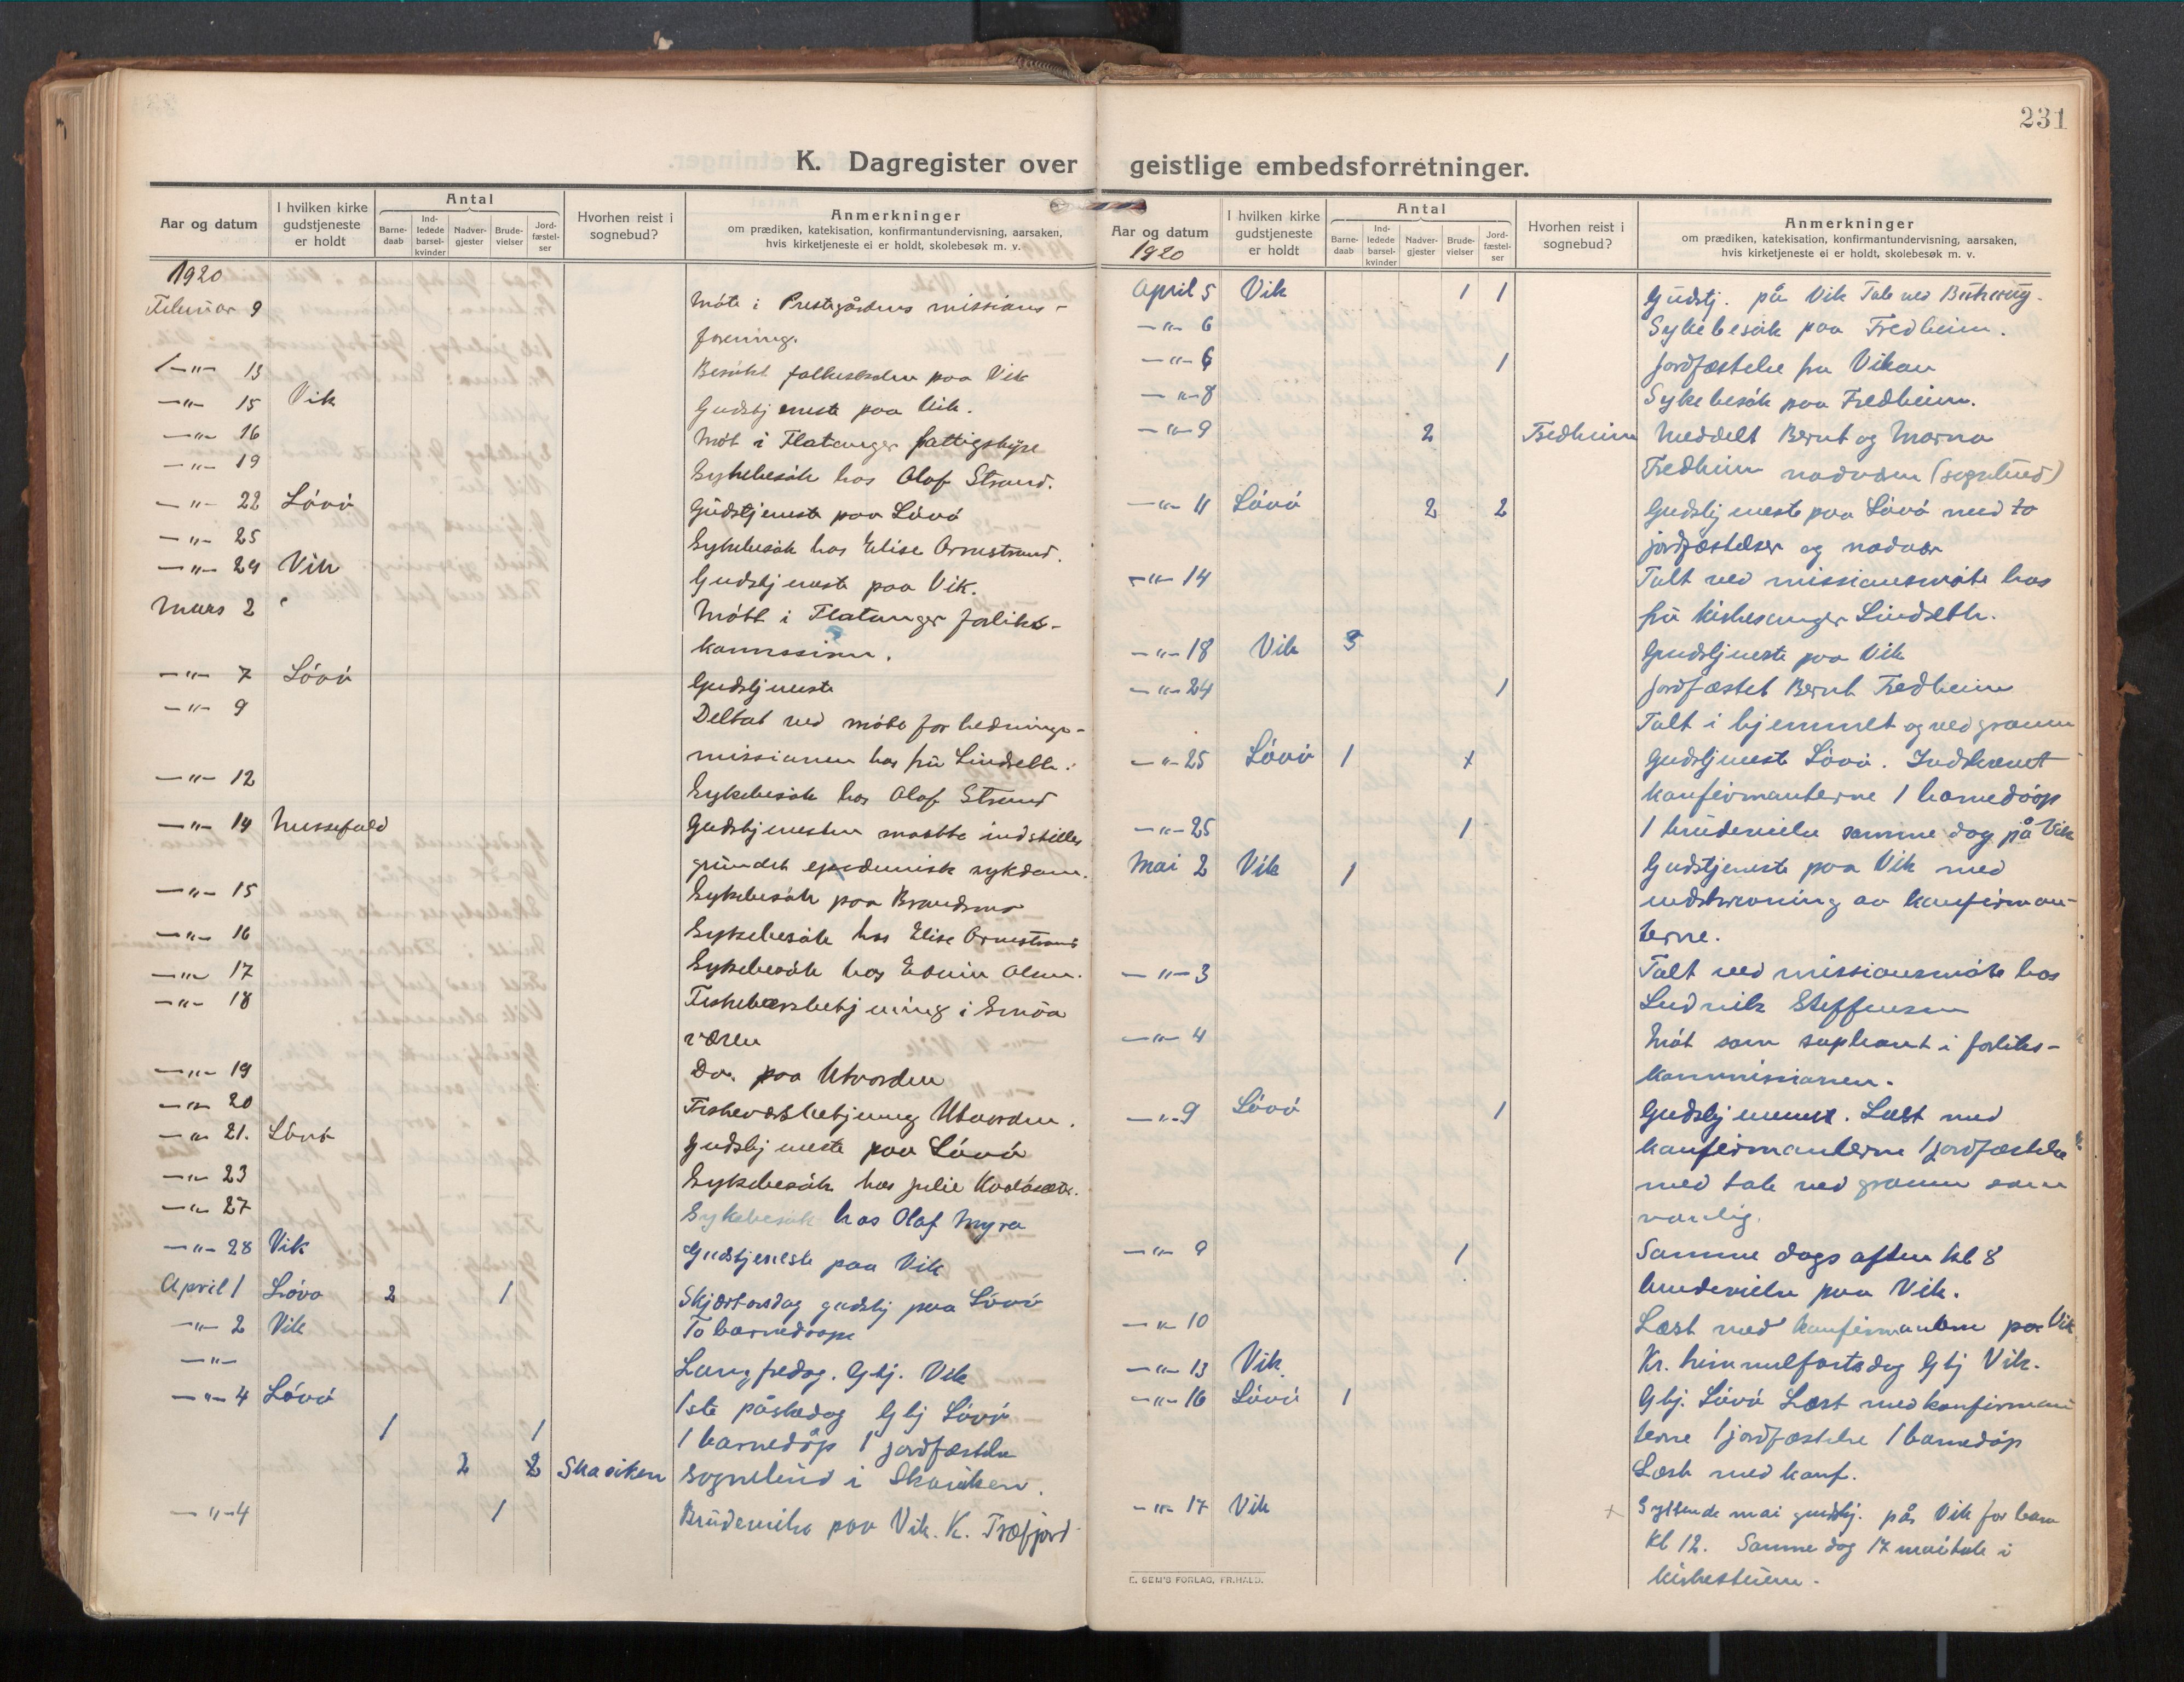 231
K. Dagregister over geistlige embedsforretninger.
Aar og datum
I hvilken kirke gudstjeneste er holdt
Antal
Barne-daab
Ind-ledede barsel-kvinder
Nadver-gjester
Brude-vielser
Jord-fæstel-ser
Hvorhen reist i sognebud?
Anmerkninger
om prædiken, katekisation, konfirmantundervisning, aarsaken,
hvis kirketjeneste ei er holdt, skolebesøk m. v.
1920
Februar 9 Móte i Prestegårdens missions-
forening.
-"- 13 Besøkt folkeskolen paa Vik
-"- 15 Vik Gudstjeneste paa Vik.
-"- 16 Møt i Flatanger fattigstyre
-"- 19 Sykebesók hos Olaf Strand.
-"- 22 Lóvó Gudstjeneste paa Lóvó
-"- 25 Sykebesók hos Elise Ornstrand.
-"- 29 Vik Gudstjeneste paa Vik.
Mars 2 " Mótt i Flatanger forliks-
kommission.
-"- 7 Lóvó Gudstjeneste
-"- 9 Deltat ved móte for hednings-
missionen hos frú Lindseth.
-"- 12 Sykebesók hos Olaf Strand
-"- 14 Gudstjenesten maatte indstilles
grundet epidemisk sykdom.
-"- 15 Sykebesók paa Brandsmo
-"- 16 Sykebesók hos Elise Ornstrand
-"- 17 Sykebesók hos Edvin Olsen.
-"- 18 Fiskeværsbetjening i Smóa
væren
-"- 19 Do. paa Utvorden
-"- 20 Fiskeværsbetjening Utvorden.
-"- 21. Lóvó Gudstjeneste paa Lóvó
-"- 23 Sykebesók hos Julie
-"- 27 Sykebesók hos Olaf Myra
-"- 28 Vik Gudstjeneste paa Vik
April 1 Lóvo 2 1 Skjærtorsdag gudstj paa Lóvó
To barnedaape
-"- 2 Vik
-"- Langfredag. Gtj. Vik
-"- 4 Lóvó 1ste påskedag Gtj Lóvó
1 1 1 barnedåp 1 jordfæstelse
2 2 Skaviken Sognebud i Skaviken.
-"- 4 1 Brudevielse paa Vik. K. Træfjord
Aar og datum
I hvilken kirke gudstjeneste er holdt
Antal
Barne-daab
Ind-ledede barsel-kvinder
Nadver-gjester
Brude-vielser
Jord-fæstel-ser
Hvorhen reist i sognebud?
Anmerkninger
om prædiken, katekisation, konfirmantundervisning, aarsaken,
hvis kirketjeneste ei er holdt, skolebesøk m. v.
1920
April 5 Vik 1 1 Gudstj. på Vik Tale ved
-"- 6 Sykebesók paa Fredheim.
-"- 6 1 Jordfæstelse fra Vikan
-"- 8 Sykebesók paa Fredheim.
-"- 9 2 Fredheim Meddelt Bernt og Marna
Fredheim nadveren (sognebud)
-"- 11 Lóvó 2 2 Gudstjeneste paa Lóvó med to
jordfæstelser og nadver
-"- 14 Talt ved missionsmóte hos
frú kirkesanger Lindseth.
-"- 18 Vik 3 Gudstjeneste paa Vik
-"- 24 1 Jordfæstet Bernt Fredheim
Talt i hjemmet og ved graven
-"- 25 Lóvó 1 Gudstjeneste Lóvó. Indskrevet
konfirmanterne 1 barnedóp
-"- 25 1 1 brudevielse samme dag på Vik
Mai 2 Vik 1 Gudstjeneste paa Vik med
indskrivning av konfirman-
terne.
-"- 3 Talt ved missionsmóte hos
Ludvik Steffensen
-"- 4 Mót som supleant i forliks-
kommissionen.
-"- 9 Lóvó 1 Gudstjeneste. Læst med
konfirmanterne 1 jordfæstelse
med tale ved graven som
vanlig.
-"- 9 1 Samme dags aften kl 8
brudevielse paa Vik.
-"- 10 Læst med konfirmanterne paa Vik
-"- 13 Vik Kr. himmelfartsdag Gtj Vik.
-"- 16 Lóvó 1 Gtj. Lóvó Læst med konfirman
terne 1 jordfæstelse 1 barnedóp
Læst med konf.
-"- 17 Vik Syttende mai gudstj. på Vik for barn
Kl 12. Samme dag 17 maitale i
kirkestuen.
E. SEM'S FORLAG, FR.HALD.